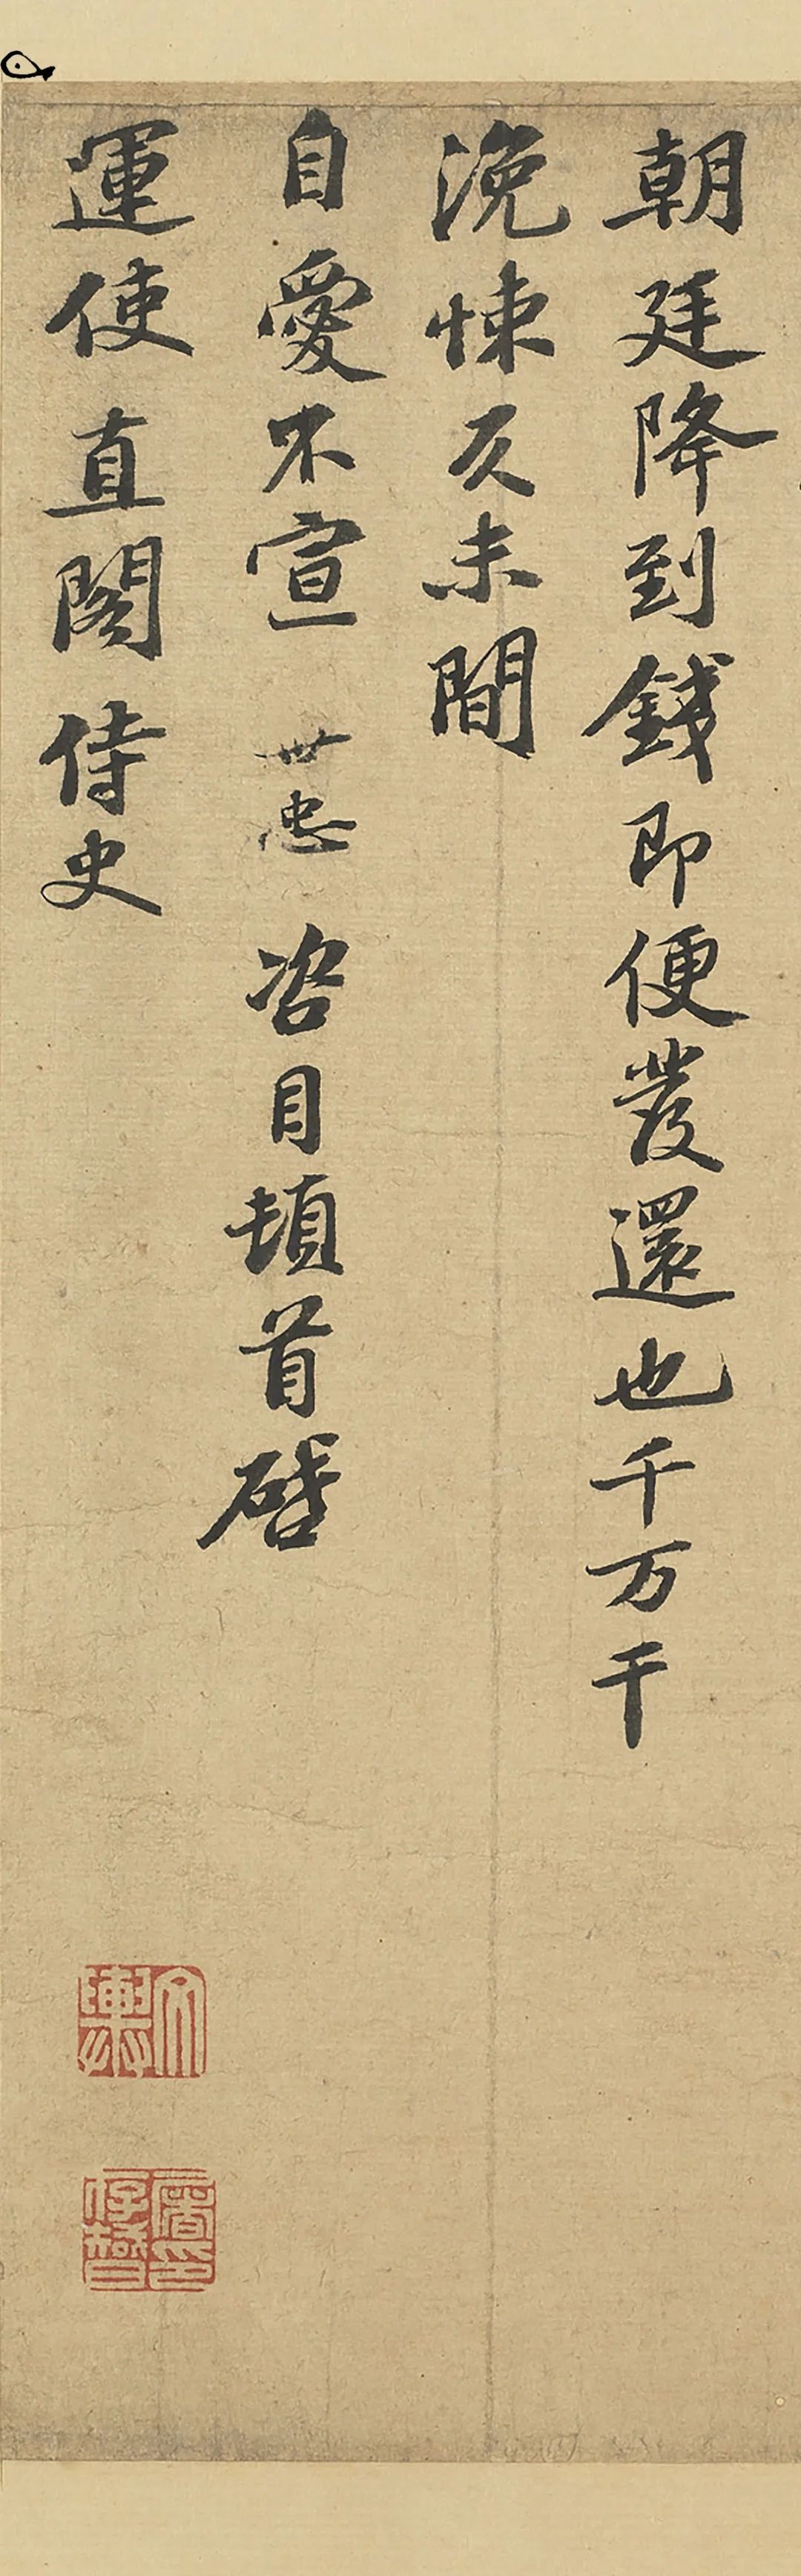 朝廷降到錢即便發還也千万千
浼悚仄未間
自愛不宣 世忠 咨目頓首啓
運使直閣侍史